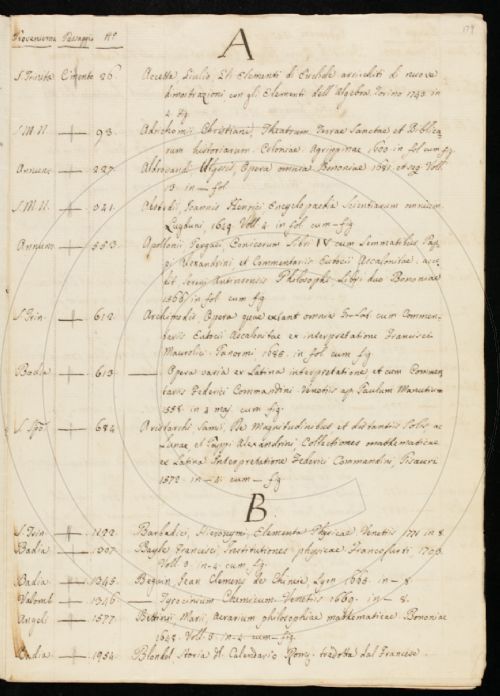 Provenienza Passaggio N.º
A
S. Trinita Cimento 26. Accetta, Giulio, Gli Elementi di Euclide accresciuti di nuove
dimostrazioni con gli Elementi dell'Algebra. Torino 1753. in
4. fig.
S. M. N. 93. Adrichomii Christiani, Theatrum Terrae Sanctae et Biblica
rum historiarum. Coloniae Agrippinae 1600. in fol. cum fig.
Annunz. 227. Aldrovandi Ulyssis, Opera omnia Bononiae 1681. et seq. Voll.
13. in — fol.
S. M. N. 341. Alstedii, Joannis Henrici Encyclopaedia Scientiarum omnium.
Lugduni, 1649. Voll. 4. in fol. cum — fig.
Annunz. 553. Apollonii Pergaei, Conicorum Libri IV cum Lemmatibus Pap
pi Alexandrini et Commentariis Eutocii Ascalonitae: acce
dit Sereni Antinensis Philosophi, Libri duo. Bononiae
1566. in fol. cum fig.
S. Trin. 612. Archimedis Opera quae extant omnia Gr-Lat. cum Commen-
tariis Eutocii Ascalonitae ex interpretatione Francisci
Maurolici. Panormi 1685. in fol. cum fig.
Badia 613. — Opera varia ex Latina interpretatione et cum Commen
tariis Federici Commandini. Venetiis ap. Paulum Manutium
1558. in 4. maj. cum fig.
S. Spo. 684. Aristarchi Samii, De Magnitudinibus et distantiis Solis, ac
Lunae, et Pappi Alexandrini Collectiones mathematicae
ex Latina Interpretatione Federici Commandini, Pisauri
1572. in — 4. cum — fig.
B.
S. Trin. 1122. Barbadici, Hieronymi, Elementa Physicae Venetiis 1771 in 8.
Badia 1307. Bayle Francisci Institutiones physicae Francofurti 1703.
Voll. 3. in - 4. cum fig.
Badia 1345. Beguin Jean Elemens de Chimie Lyon 1665. in — 8.
Valomb. 1346. — Tyrocinium Chemicum. Venetiis 1669. in — 8.
Angeli 1577. Bettinii Marii, Aerarium philosophiae mathematicae Bononiae
1648. Voll. 3. in - 4. cum — fig.
Badia 1954. Blondel Storia del Calendario Rom. tradotta dal Francese.